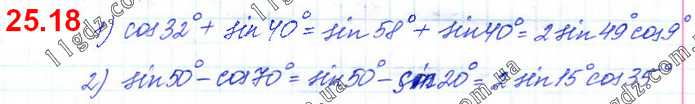 25.18 1) cos32° + sin40° = sin58° + sin40° = 2sin49°cos9°
2) sin50° - cos70° = sin50° - sin20° = 2sin15°cos35°